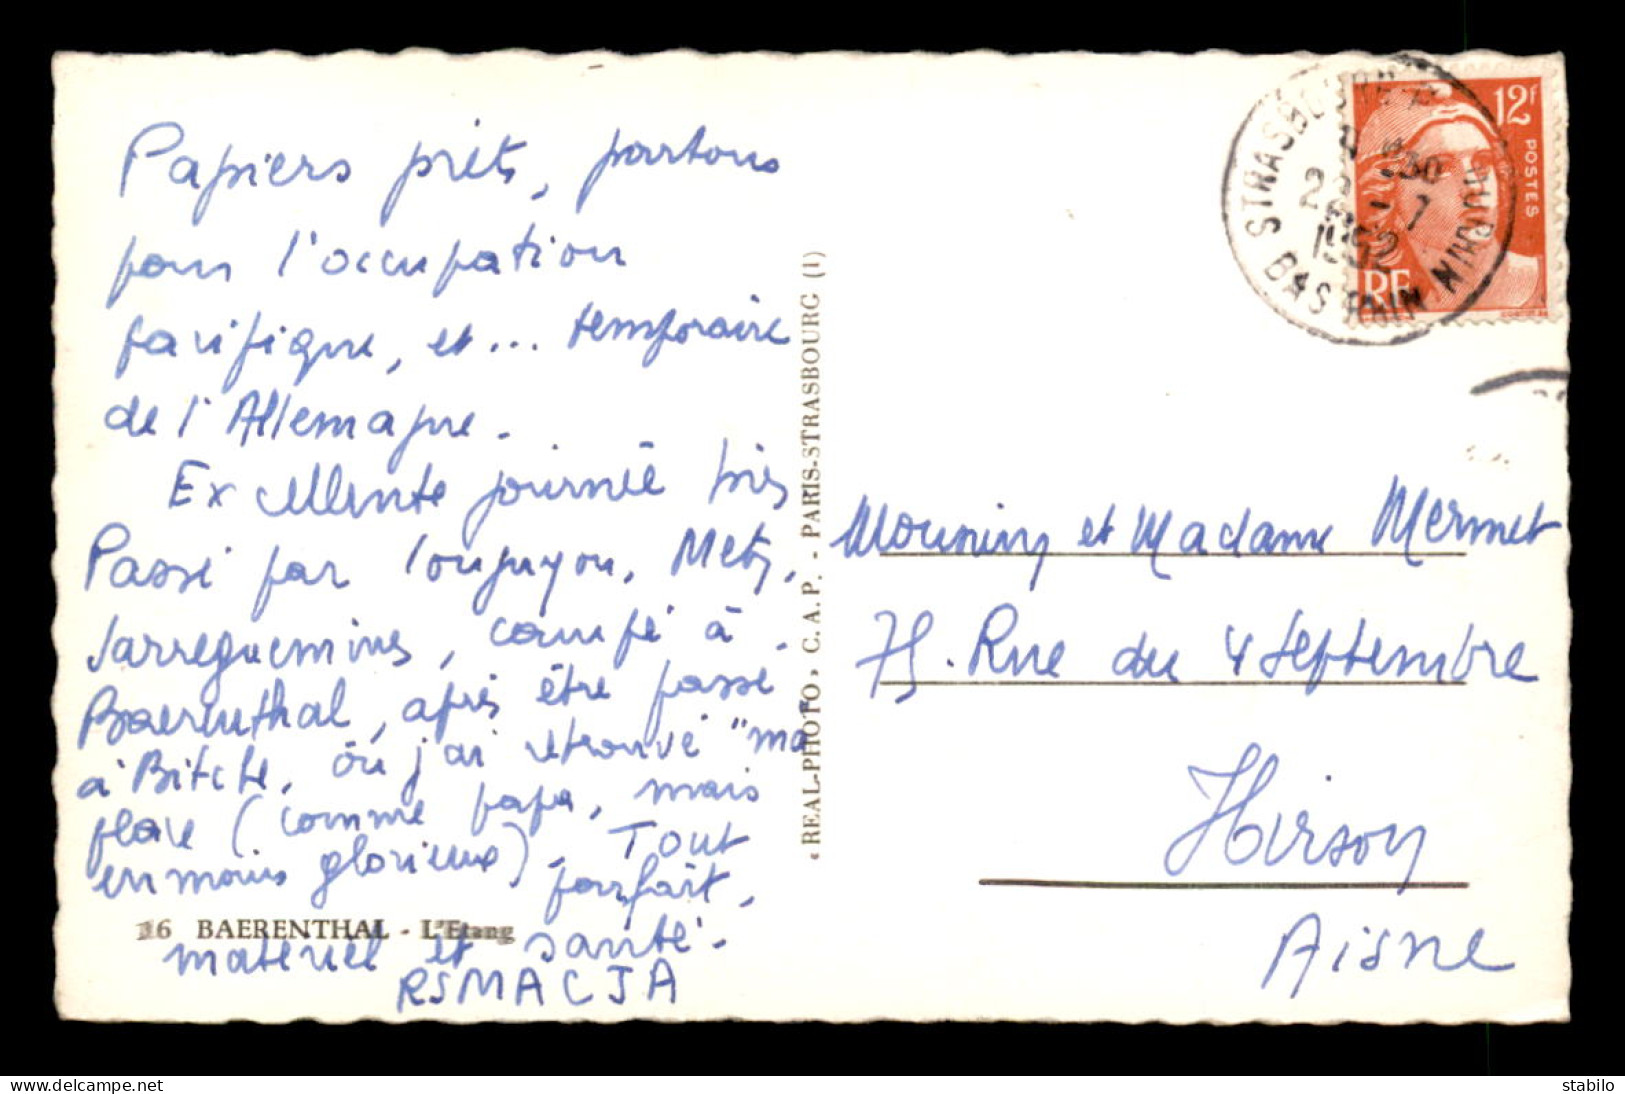 Papiers prêts, partons
pour l'occupation
pacifique, et... temporaire
de l'Allemagne.
Excellente journée
Passé par Longuyon, Metz,
Sarreguemines, campé à
Baerenthal, après être passé
à Bitche, où j'ai retrouvé "ma
place (comme papa, mais
en moins glorieux). Tout
parfait,
16 BAERENTHAL - L'Etang
matériel et santé.
RSMACJA
"REAL-PHOTO", C.A.P. - PARIS-STRASBOURG (1)
12F
POSTES
RF
STRASBOURG
1952
BAS RHIN
Monsieur et Madame Mermet
75. Rue du 4 Septembre
Hirson
Aisne
stabilo